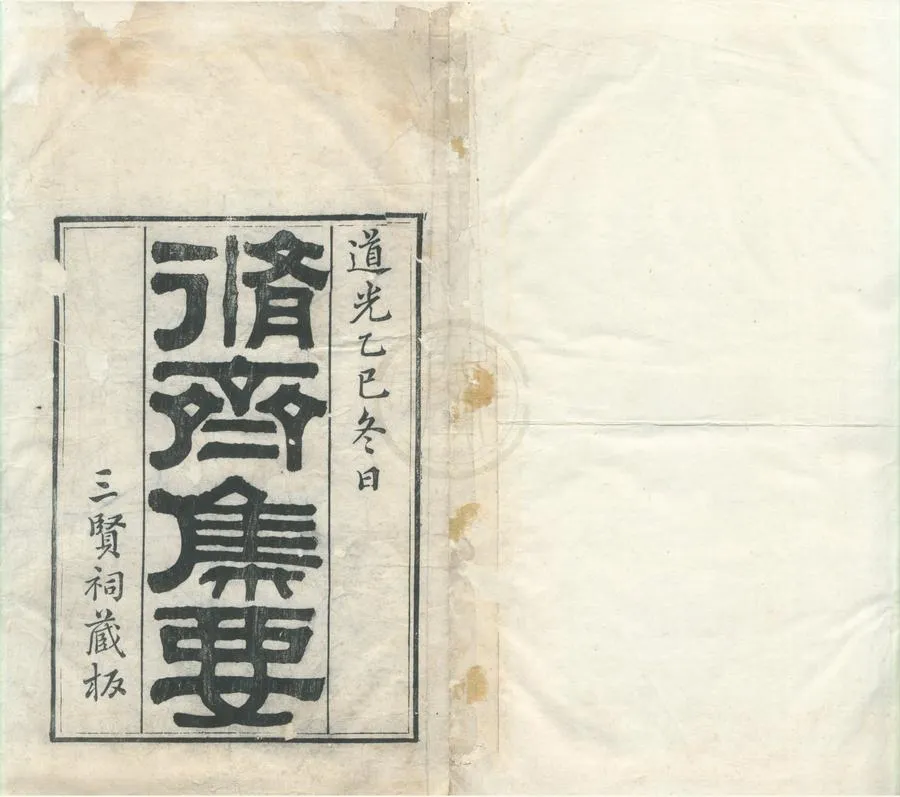 道光乙巳冬日
脩齊集要
三賢祠藏板